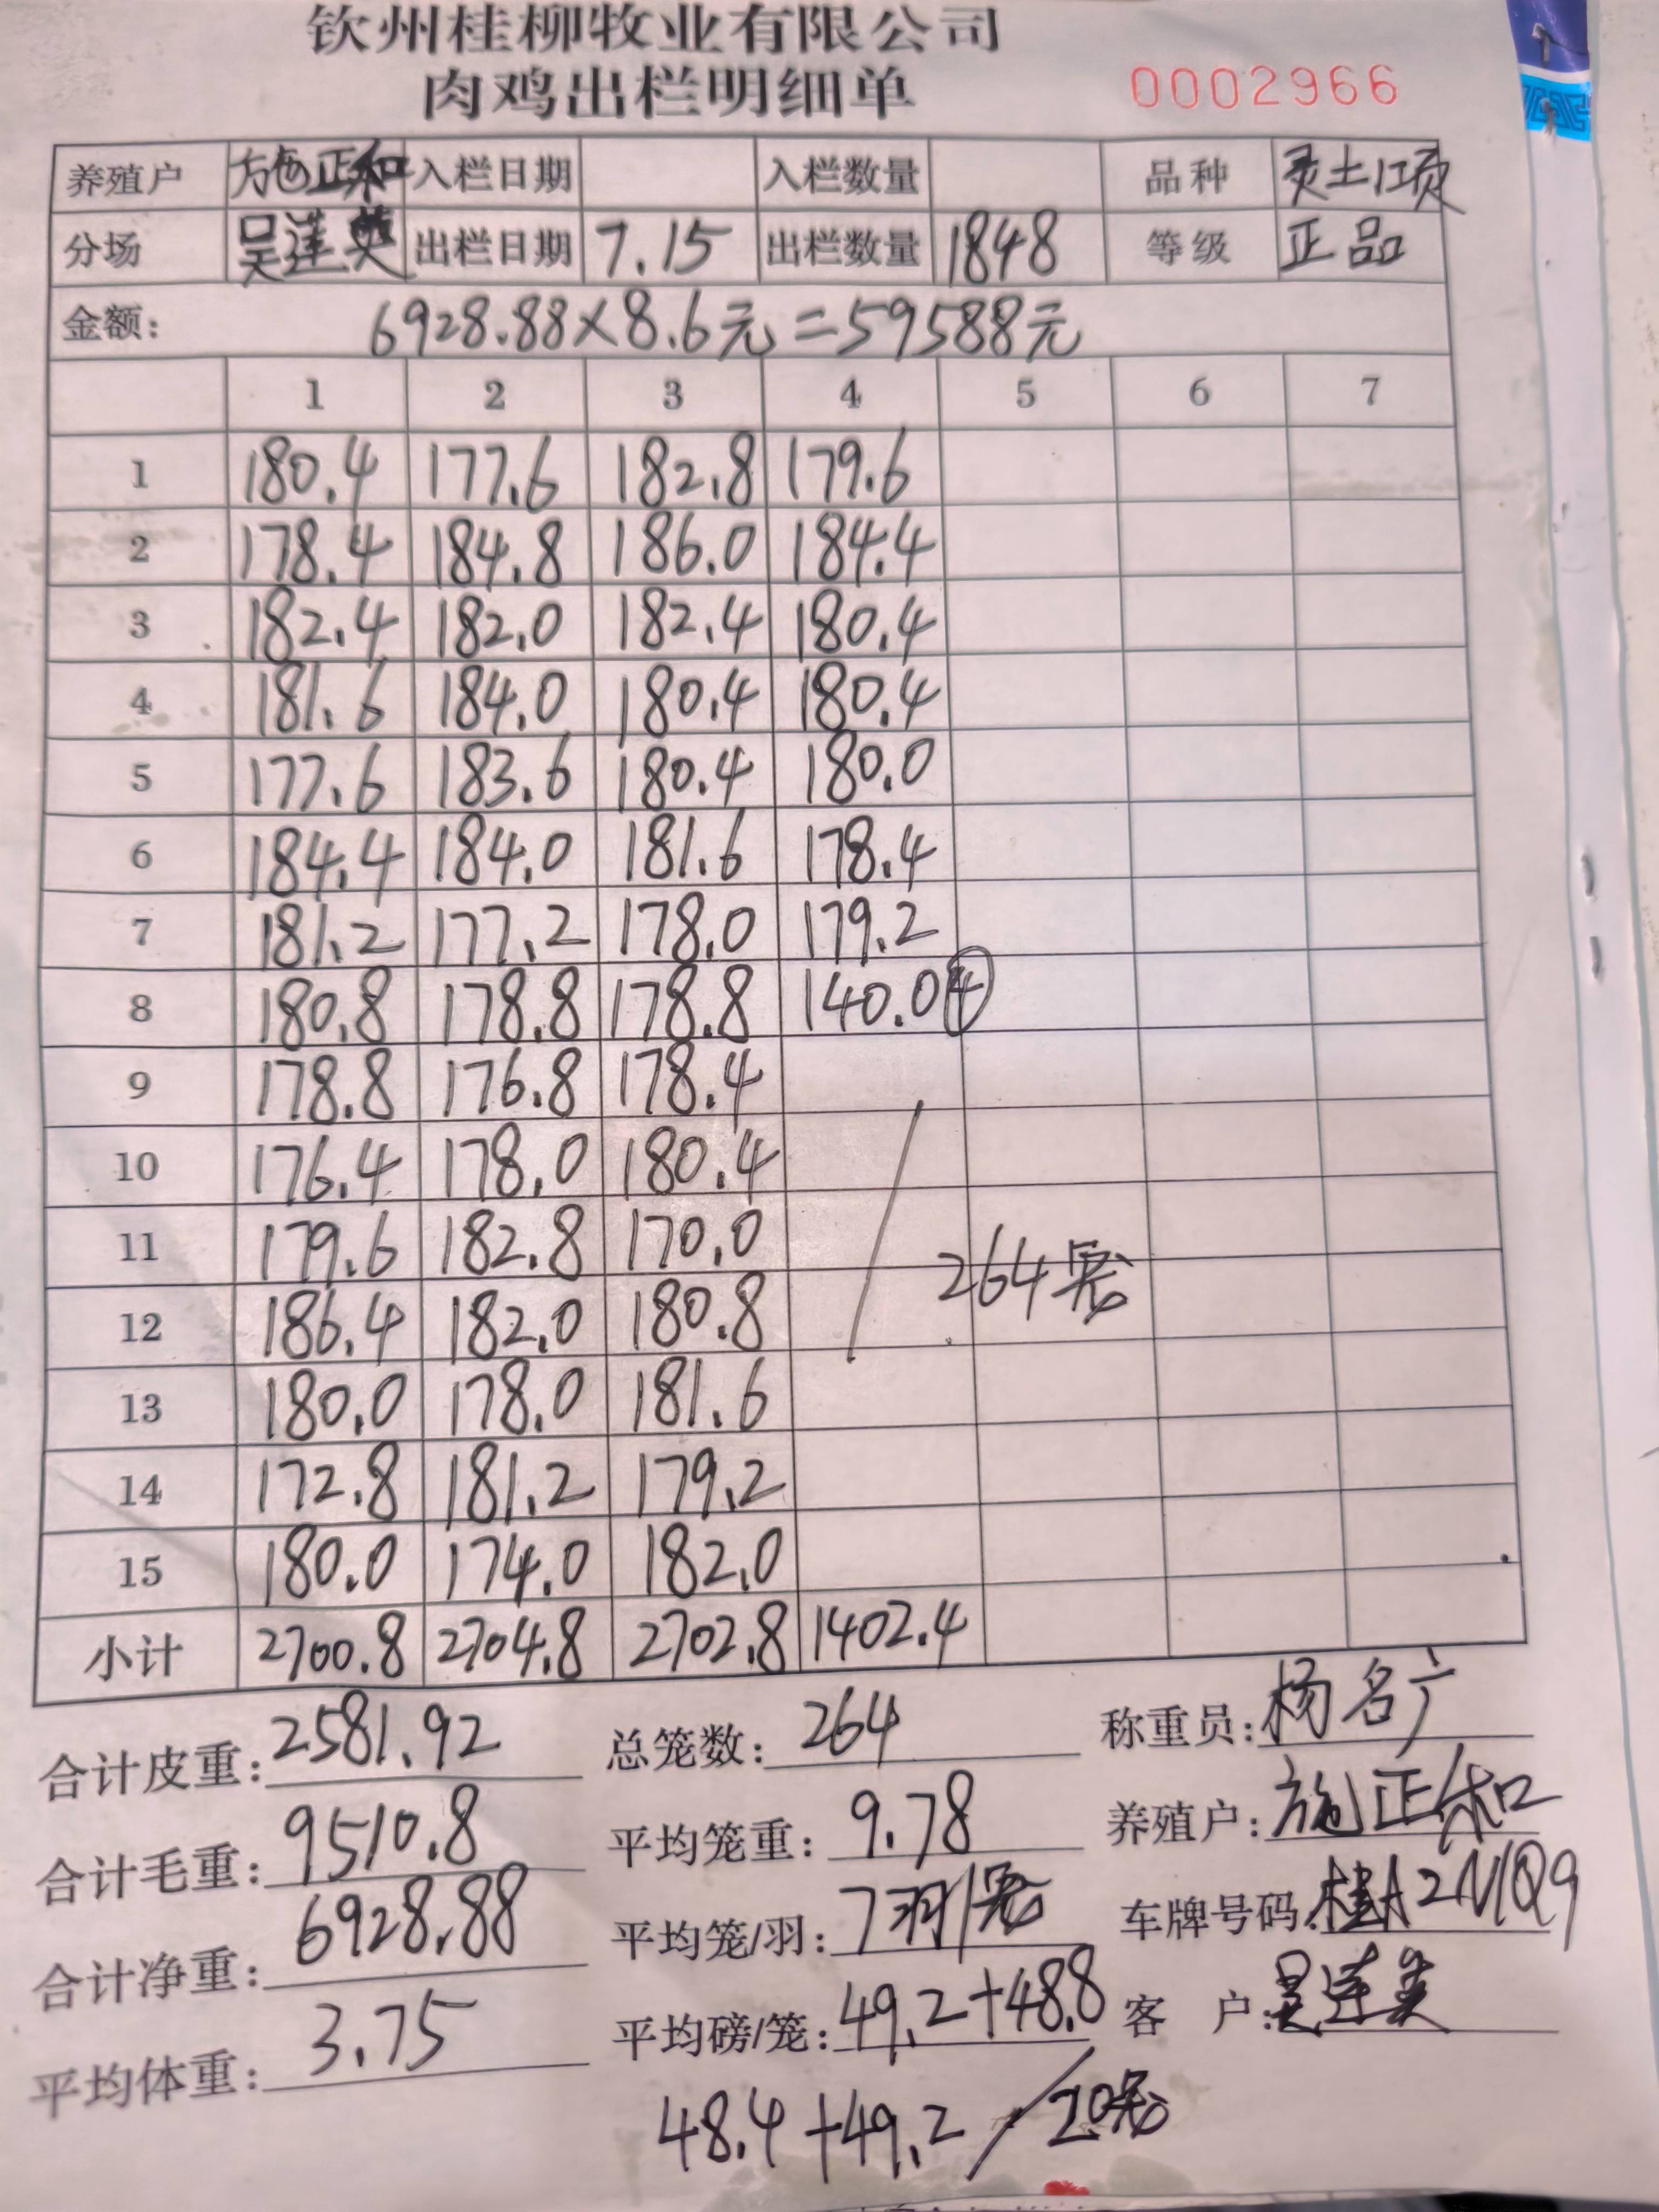 钦州桂柳牧业有限公司
肉鸡出栏明细单 0002966
养殖户 施正和 入栏日期 入栏数量 品种 灵土项
分场 吴莲英 出栏日期 7.15 出栏数量 1848 等级 正品
金额: 6928.88×8.6元=59588元
1 2 3 4 5 6 7
1 180.4 177.6 182.8 179.6
2 178.4 184.8 186.0 184.4
3 182.4 182.0 182.4 180.4
4 181.6 184.0 180.4 180.4
5 177.6 183.6 180.4 180.0
6 184.4 184.0 181.6 178.4
7 181.2 177.2 178.0 179.2
8 180.8 178.8 178.8 140.0 ④
9 178.8 176.8 178.4
10 176.4 178.0 180.4
11 179.6 182.8 170.0
264笼
12 186.4 182.0 180.8
13 180.0 178.0 181.6
14 172.8 181.2 179.2
15 180.0 174.0 182.0
小计 2700.8 2704.8 2702.8 1402.4
合计皮重: 2581.92 总笼数: 264 称重员: 杨名广
合计毛重: 9510.8 平均笼重: 9.78 养殖户: 施正和
合计净重: 6928.88 平均笼/羽: 7羽/笼 车牌号码: 桂A2N1Q9
平均体重: 3.75 平均磅/笼: 49.2+48.8 客 户: 吴莲英
48.4+49.2/20笼